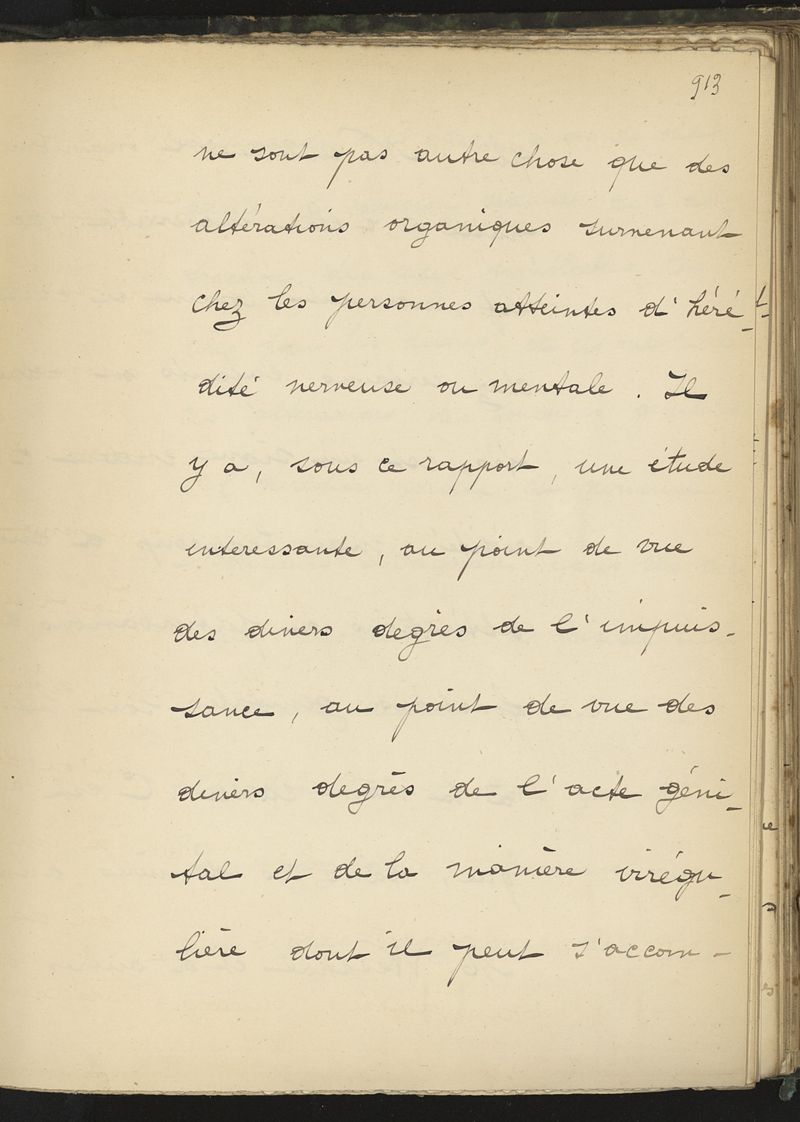 913
ne sont pas autre chose que des
altérations organiques survenant
chez les personnes atteintes d'héré-
dité nerveuse ou mentale. Il
y a, sous ce rapport, une étude
interessante, au point de vue
des divers degrès de l'impuis-
sance, au point de vue des
divers degrès de l'acte géni-
tal et de la manière irrégu-
lière dont il peut s'accom-